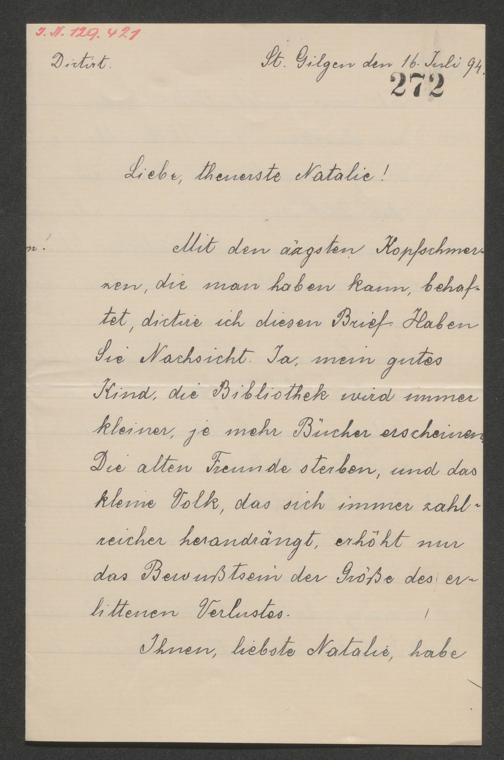 J. N. 129.421
Dictirt. St. Gilgen den 16. Juli 94.
272
Liebe, theuerste Natalie!
n! Mit den ärgsten Kopfschmer-
zen, die man haben kann, behaf-
tet, dictire ich diesen Brief. Haben
Sie Nachsicht. Ja, mein gutes
Kind, die Bibliothek wird immer
kleiner, je mehr Bücher erscheinen.
Die alten Freunde sterben, und das
kleine Volk, das sich immer zahl-
reicher herandrängt, erhöht nur
das Bewußtsein der Größe des er-
littenen Verlustes.
Ihnen, liebste Natalie, habe